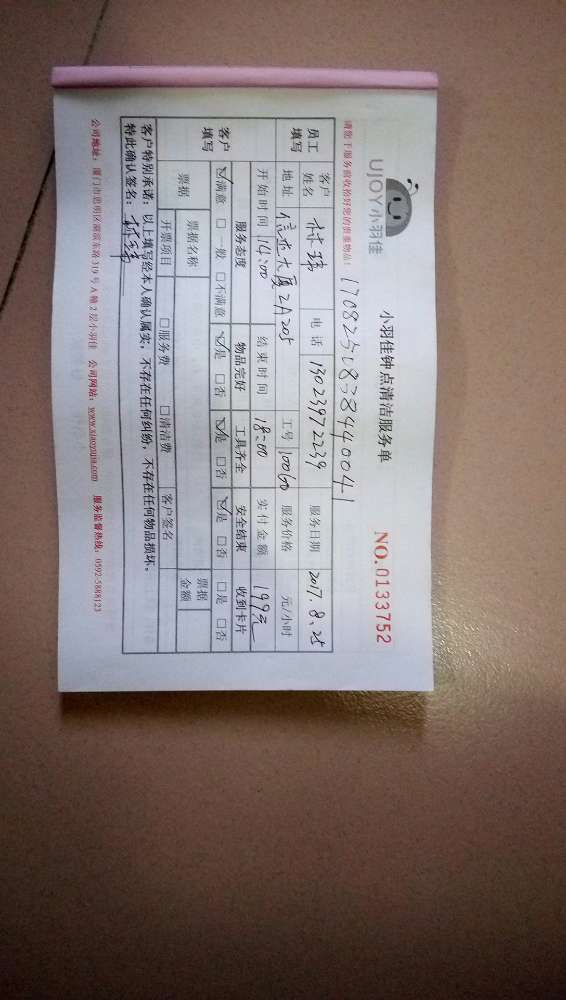 UJOY小羽佳
小羽佳钟点清洁服务单
NO.0133752
请您于服务前收拾好您的贵重物品！
员工填写
客户姓名 林瑞 电话 13023972239 服务日期 2017.8.25
地址 信宏大厦2A205 工号 10060 服务价格 元/小时
开始时间 14:00 结束时间 18:00 实付金额 199元
客户填写
服务态度 物品完好 工具齐全 安全结束 收到卡片
☑满意 □一般 □不满意 ☑是 □否 ☑是 □否 ☑是 □否 □是 □否
票据 票据名称 票据金额
开票项目 □服务费 □清洁费 客户签名
客户特别承诺：以上填写经本人确认属实，不存在任何纠纷，不存在任何物品损坏。
特此确认签名：林瑞
公司地址：厦门市思明区湖滨东路319号A幢2层小羽佳 公司网站：www.xiaoyujia.com 服务监督热线：0592-5888123